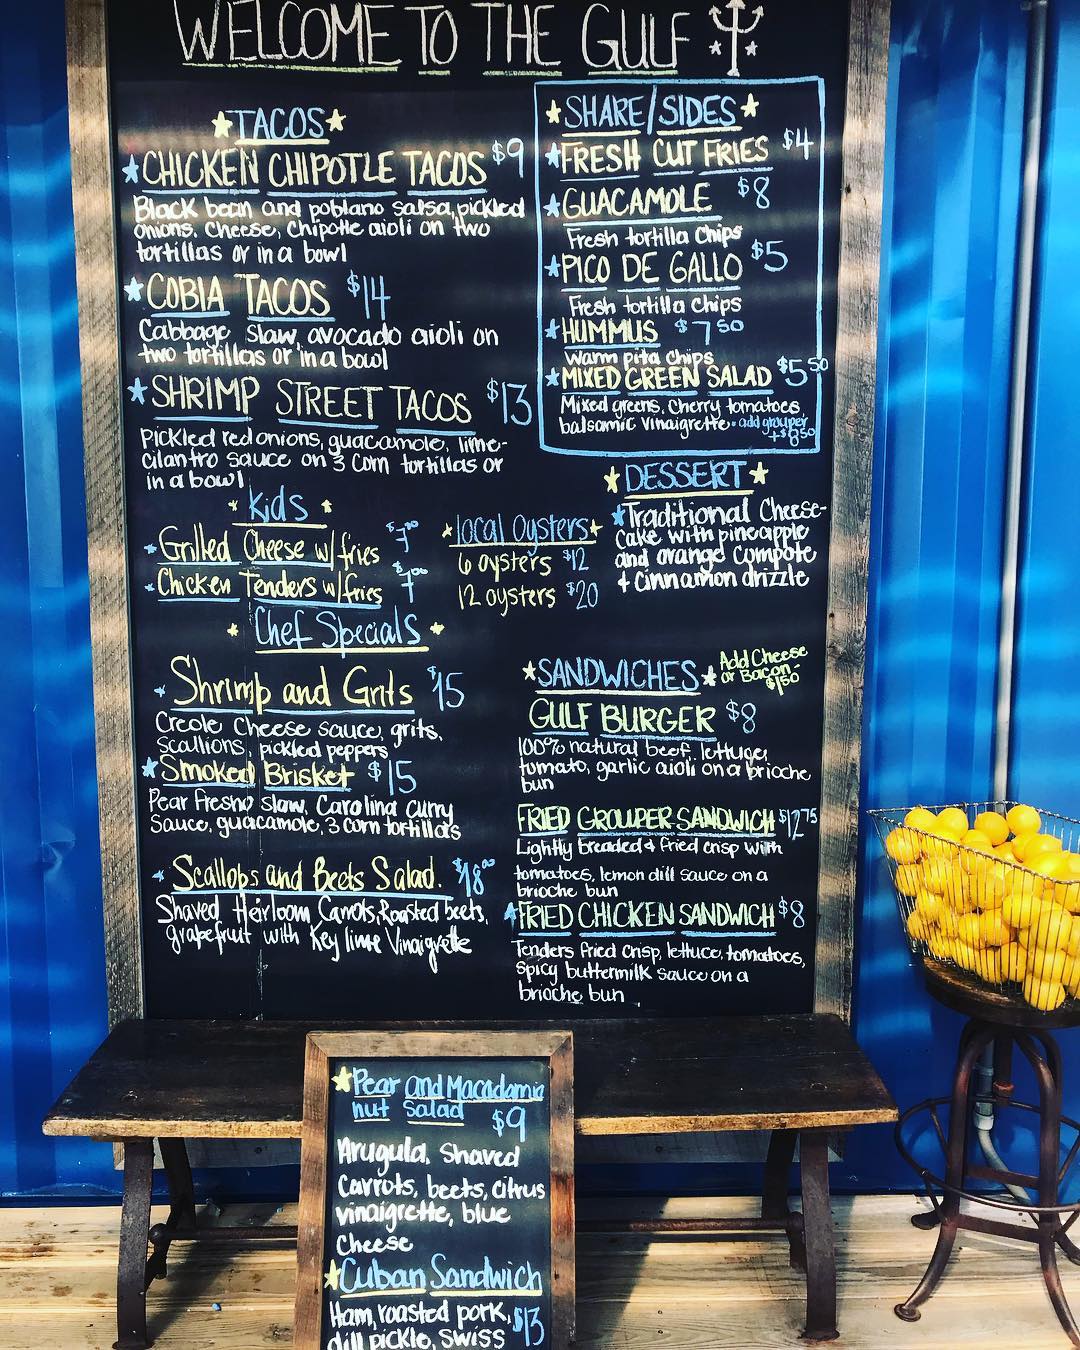 WELCOME TO THE GULF
TACOS
CHICKEN CHIPOTLE TACOS $9
Black bean and poblano salsa, pickled
onions, cheese, chipotle aioli on two
tortillas or in a bowl
COBIA TACOS $14
Cabbage slaw, avocado aioli on
two tortillas or in a bowl
SHRIMP STREET TACOS $13
Pickled red onions, guacamole, lime-
cilantro sauce on 3 corn tortillas or
in a bowl
Kids
Grilled Cheese w/ fries $7.00
Chicken Tenders w/ fries $7.00
local oysters
6 oysters $12
12 oysters $20
Chef Specials
Shrimp and Grits $15
Creole Cheese sauce, grits,
scallions, pickled peppers
Smoked Brisket $15
Pear Fresno slaw, Carolina curry
sauce, guacamole, 3 corn tortillas
Scallops and Beets Salad. $18.00
Shaved Heirloom Carrots, Roasted beets,
grapefruit with Key lime Vinaigrette
SHARE/SIDES
FRESH CUT FRIES $4
GUACAMOLE $8
Fresh tortilla chips
PICO DE GALLO $5
Fresh tortilla chips
HUMMUS $7 50
Warm pita chips
MIXED GREEN SALAD $5 50
Mixed greens, cherry tomatoes
balsamic vinaigrette • add grouper
+$8 50
DESSERT
Traditional Cheese-
cake with pineapple
and orange compote
+ cinnamon drizzle
SANDWICHES
Add Cheese
or Bacon-
$1.50
GULF BURGER $8
100% natural beef, lettuce,
tomato, garlic aioli on a brioche
bun
FRIED GROUPER SANDWICH $12 75
Lightly breaded & fried crisp with
tomatoes, lemon dill sauce on a
brioche bun
FRIED CHICKEN SANDWICH $8
Tenders fried crisp, lettuce, tomatoes,
spicy buttermilk sauce on a
brioche bun
Pear and Macadamia
nut salad $9
Arugula, shaved
carrots, beets, citrus
vinaigrette, blue
cheese
Cuban Sandwich
Ham, roasted pork, $13
dill pickle, swiss